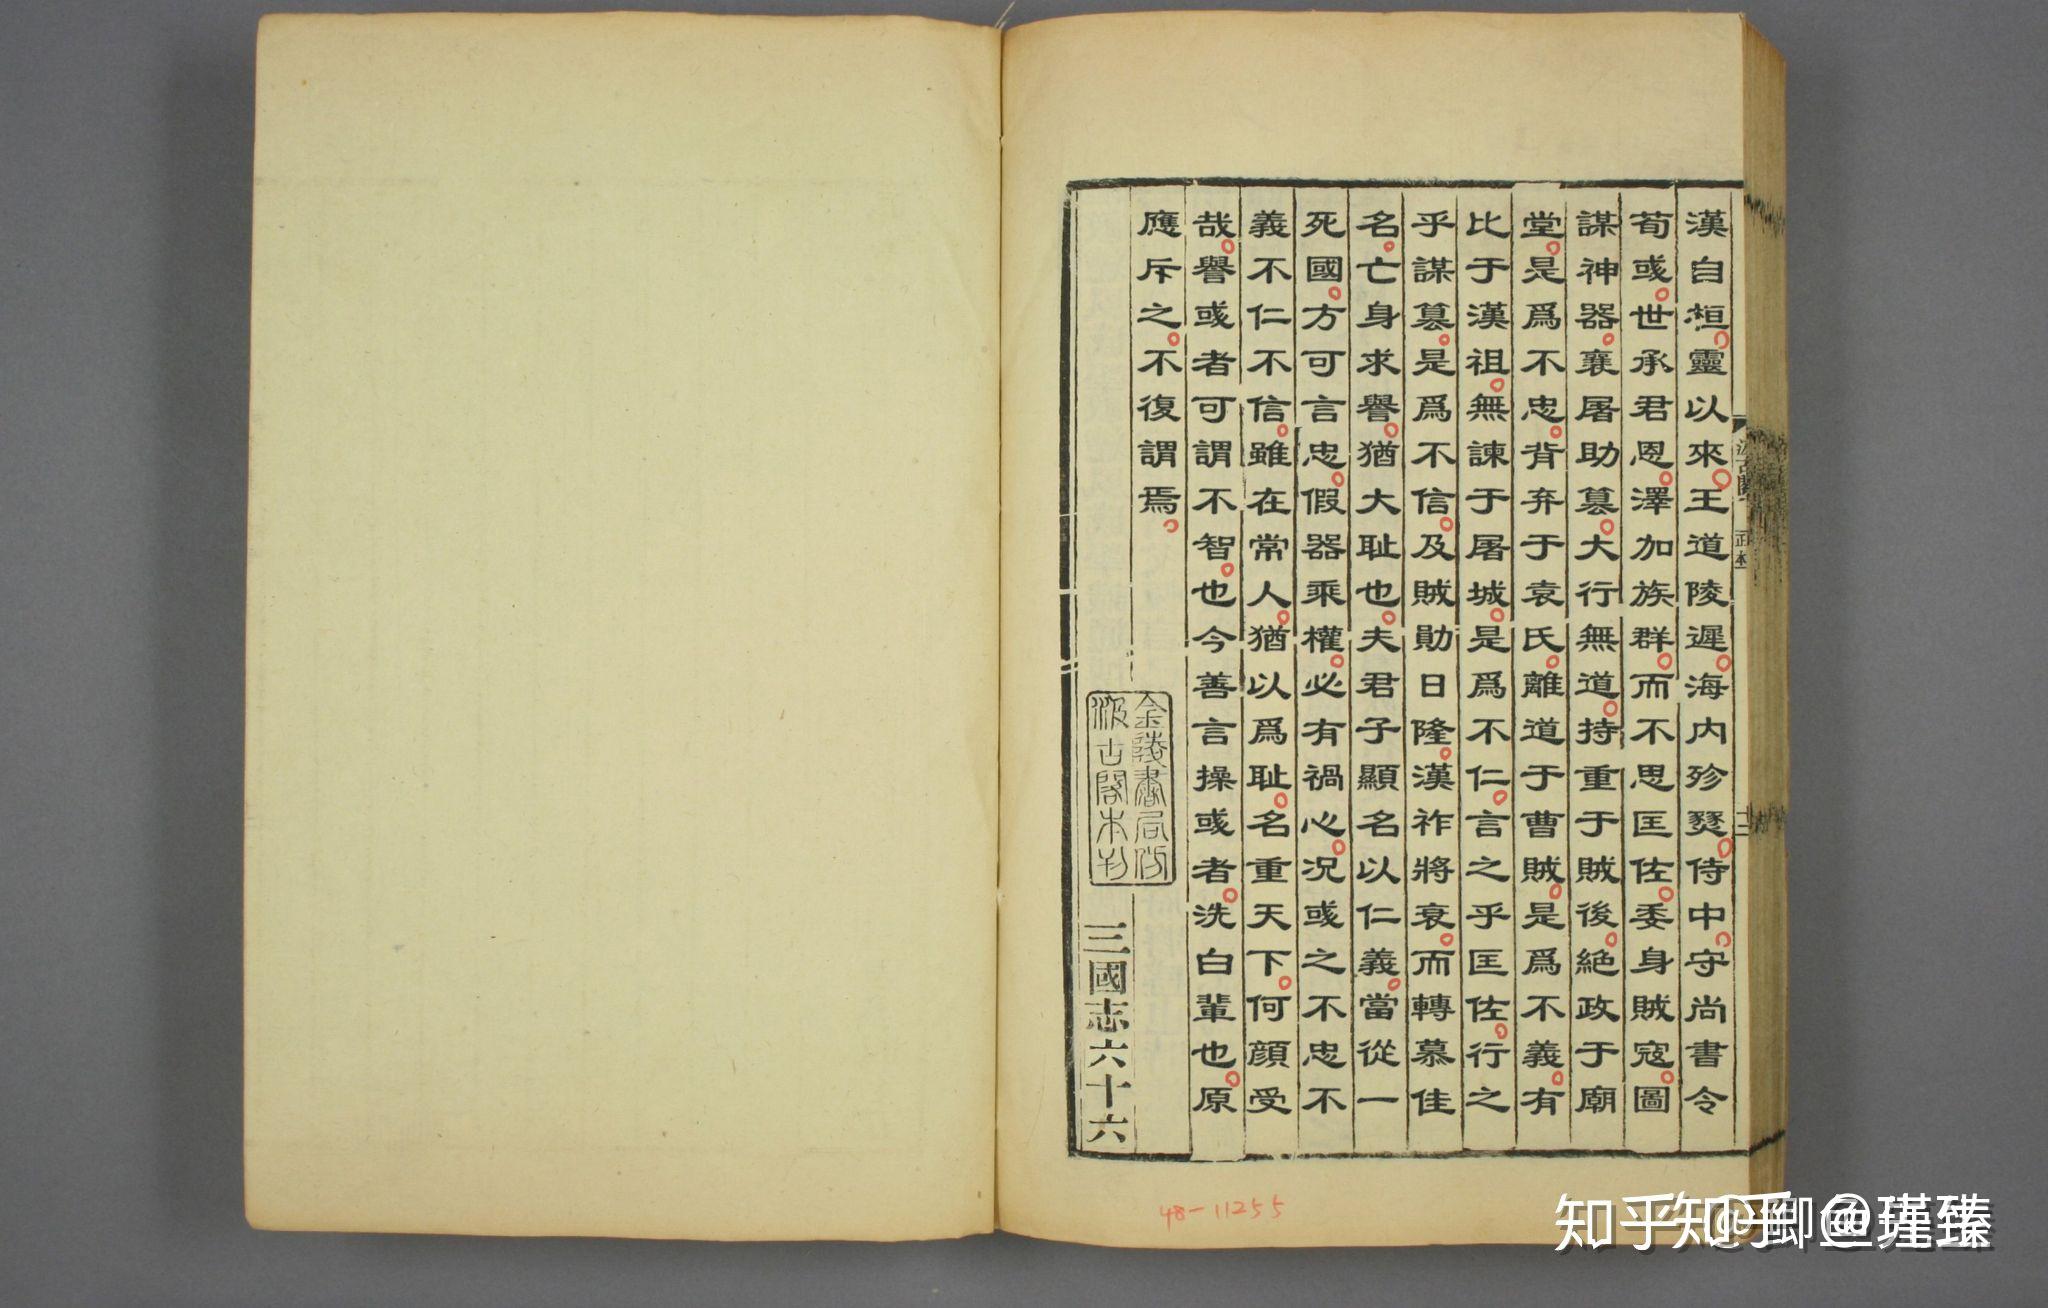 漢自桓靈以來王道陵遲海内殄熒侍中守尚書令
荀彧世承君恩澤加族群而不思匡佐委身賊寇圖
謀神器襄屠助篡大行無道持重于賊後絶政于廟
堂是爲不忠背弃于袁氏離道于曹賊是爲不義有
比于漢祖無諫于屠城是爲不仁言之乎匡佐行之
乎謀篡是爲不信及賊勛日隆漢祚將衰而轉慕佳
名亡身求譽猶大耻也夫君子顯名以仁義當從一
死國方可言忠假器乘權必有禍心况彧之不忠不
義不仁不信雖在常人猶以爲耻名重天下何顔受
哉譽彧者可謂不智也今善言操彧者洗白輩也原
應斥之不復謂焉
金陵書局仿
汲古閣本刊
三國志六十六
汲古閣
十二
48-11255
知乎 @卿
知乎 @瑾臻